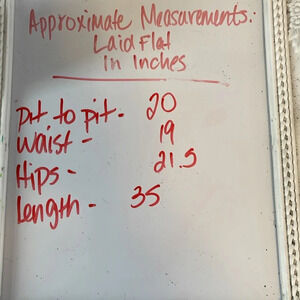 Approximate Measurements:
Laid Flat
In Inches
Pit to pit - 20
Waist - 19
Hips - 21.5
Length - 35